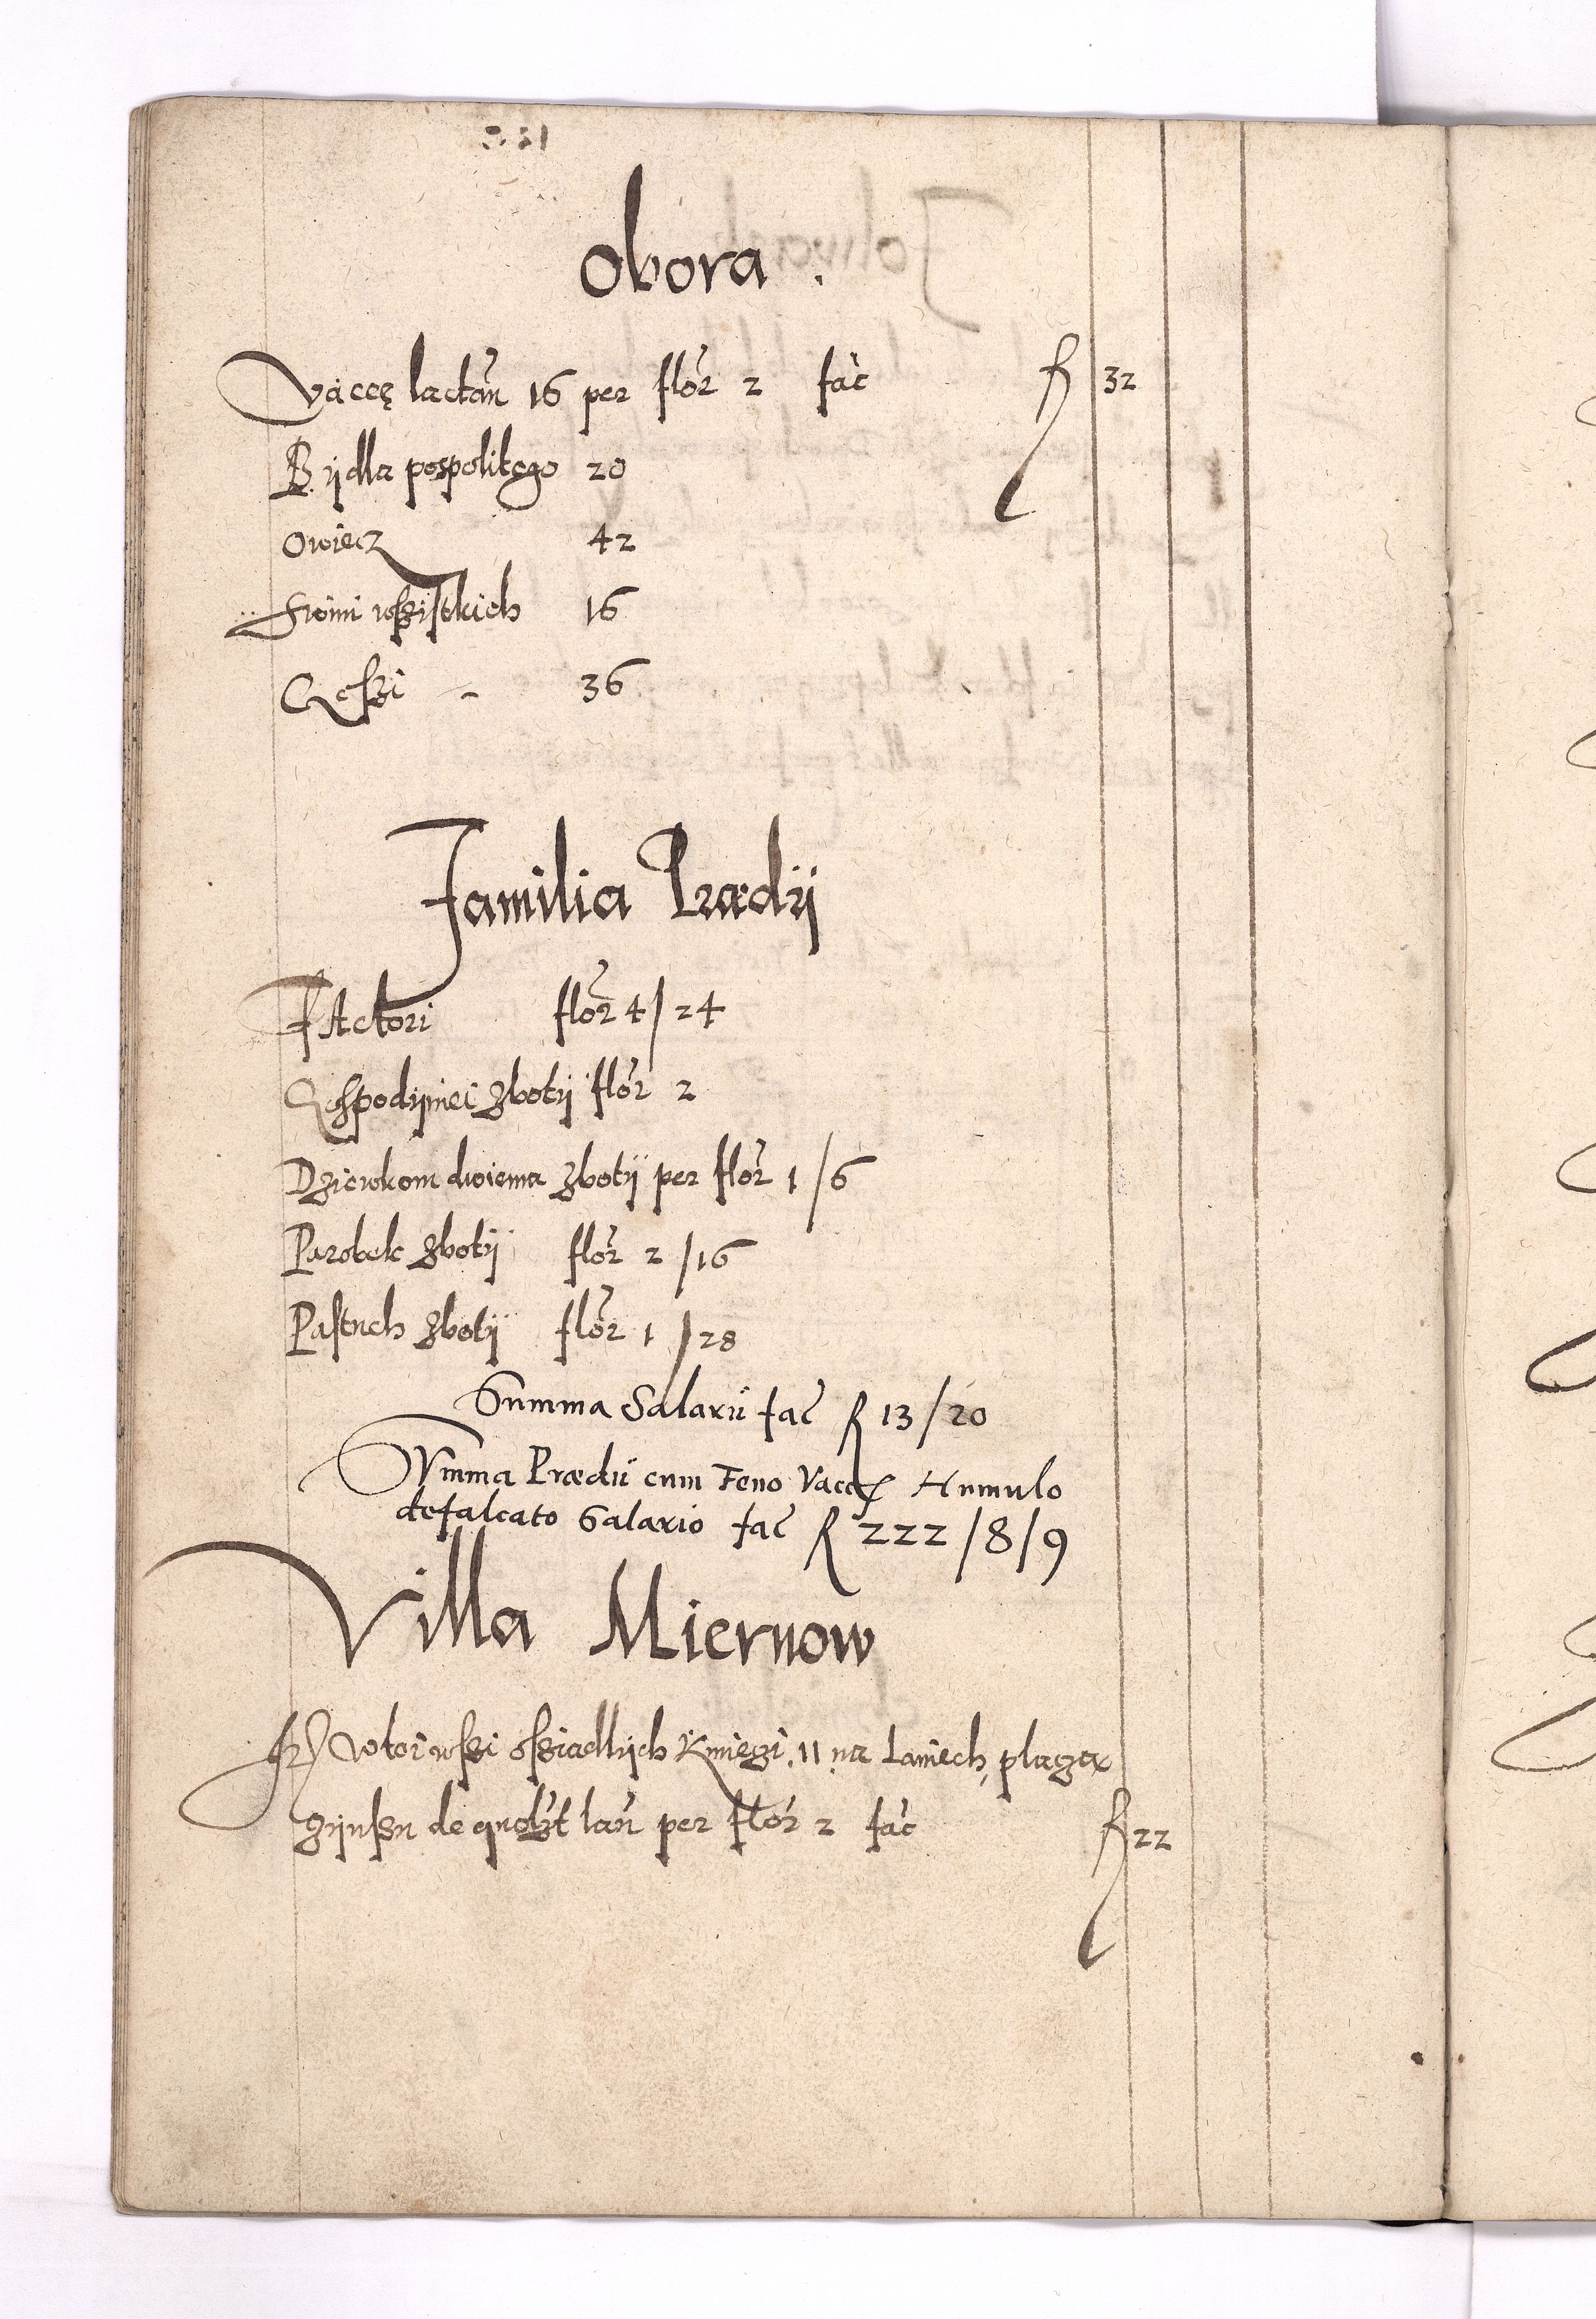 Obora .
Vaccę lactañ 16 per flor̃ 2 fac̃ fl 32
Bydla pospolitego 20
Owiecz 42
Swini wssystkich 16
Gessi - 36
Familia Prædij
FActori flor̃ 4/24
Gospodyniei zboty flor̃ 2
Dziewkom dwiema zboty per flor̃ 1/6
Parobek zboty flor̃ 2/16
Pastuch zboty flor̃ 1/28
Summa Salarii fac̃ fl 13/20
SVmma Prædii cum Feno Vacc Humulo
defalcato Salario fac̃ fl 222/8/9
Villa Miernow
W toi wssi ossiadlych Kmiezi .11 na Laniech, placzą
czynssu de quolz̃t lañ per flor̃ 2 fac̃ fl 22